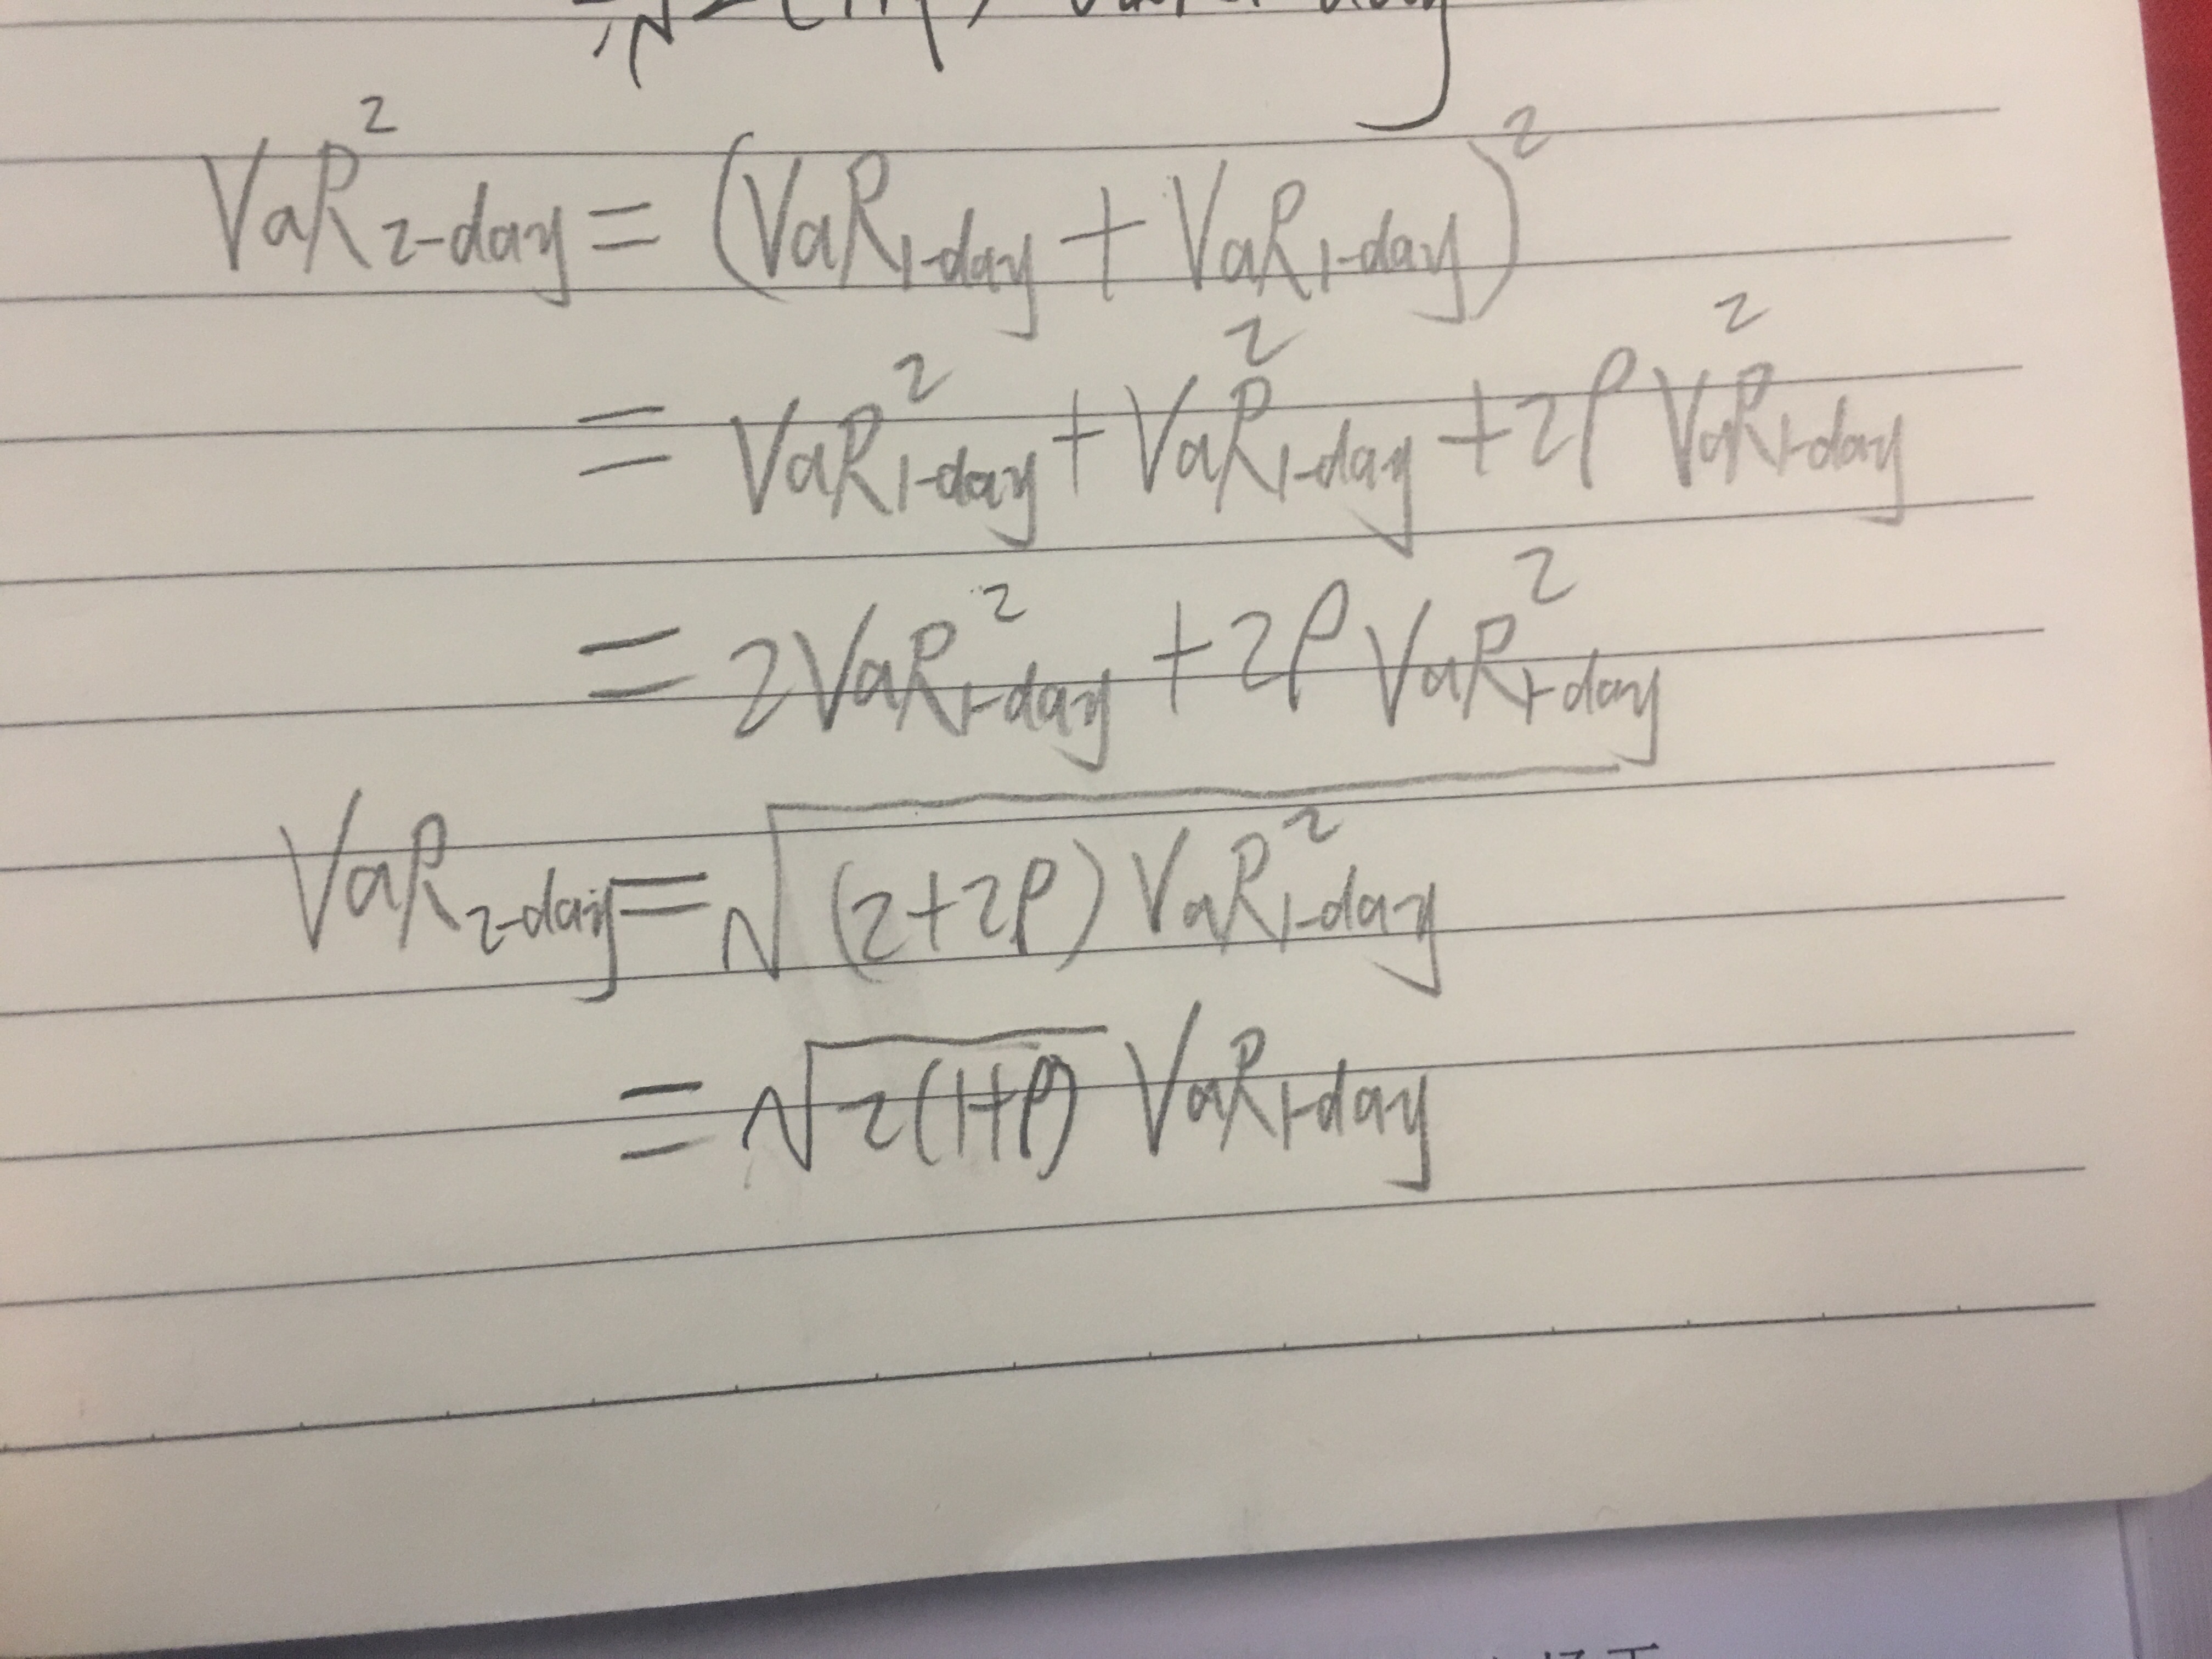 VaR²2-day = (VaR1-day + VaR1-day)²
= VaR²1-day + VaR²1-day + 2ρ VaR²1-day
= 2VaR²1-day + 2ρ VaR²1-day
VaR2-day = √(2+2ρ) VaR²1-day
= √2(1+ρ) VaR1-day